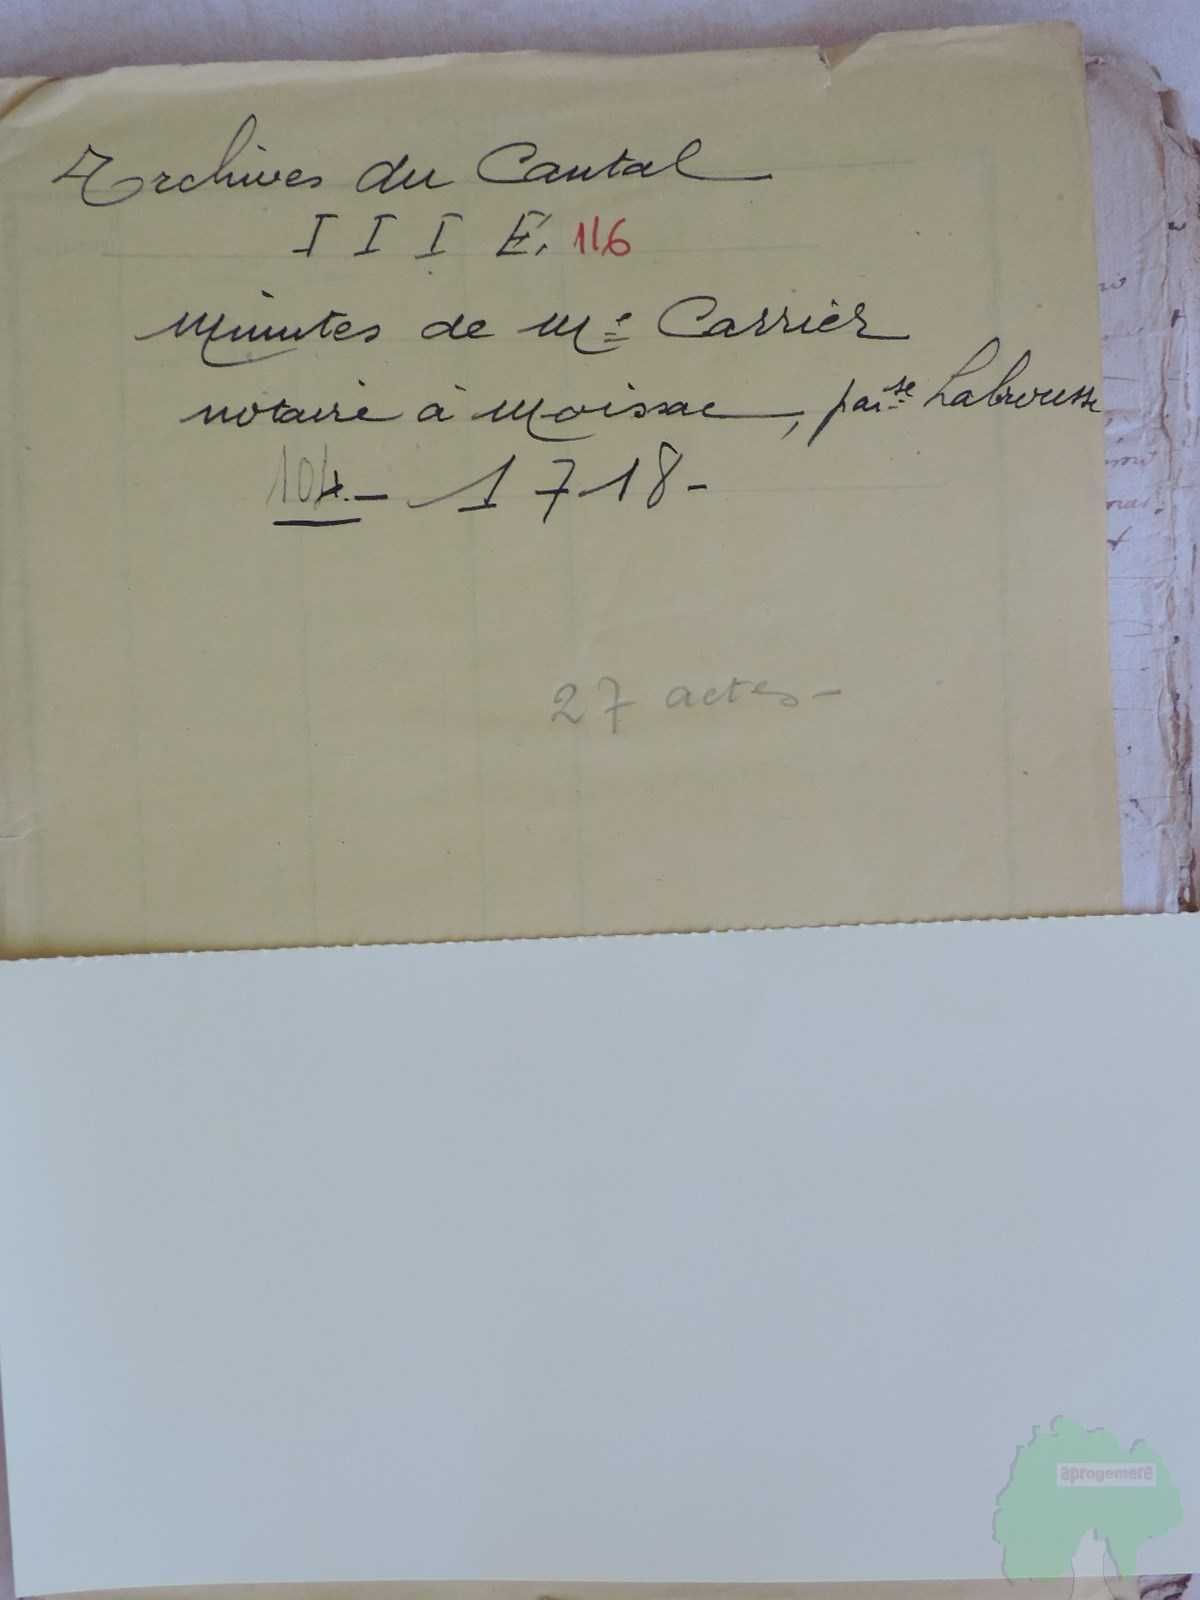 Archives du Cantal
I I I E. 116
Minutes de Me Carrier
notaire à Moissac, par.se Labrousse
104. - 1718 -
27 actes -
aprogemere